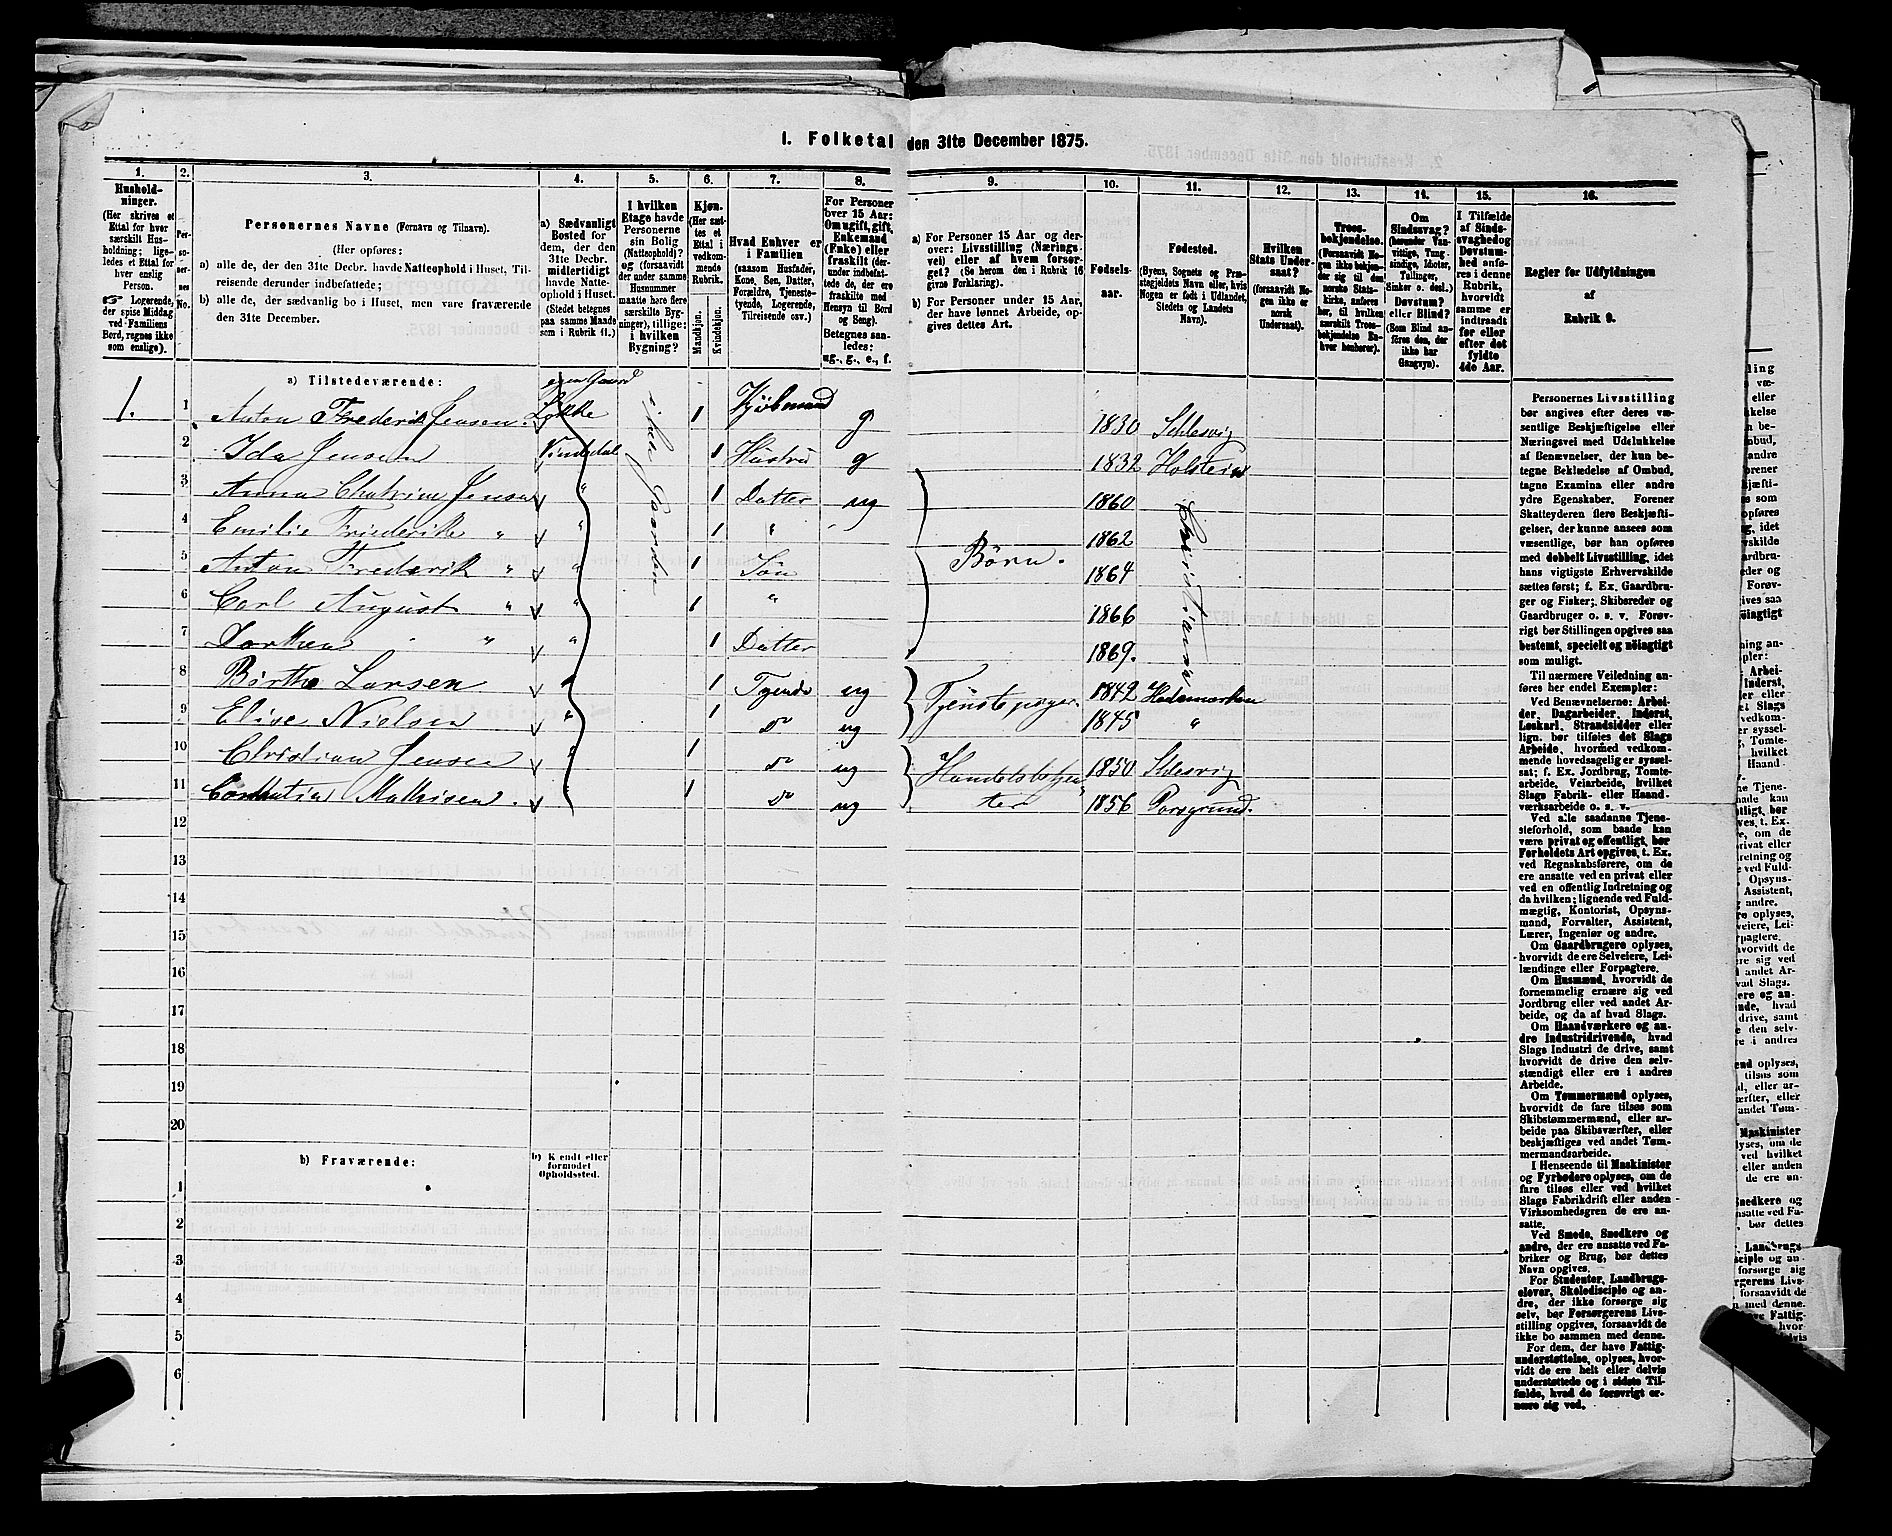 1. Folketal den 31te December 1875.
1. 2. 3. 4. 5. 6. 7. 8. 9. 10. 11. 12. 13. 14. 15. 16.
Hushold-
ninger.
(Her skrives et
Ettal for hver
særskilt Hus-
holdning; lige-
ledes et Ettal for
hver enslig
Person.
☞ Logerende,
der spise Middag
ved Familiens
Bord, regnes ikke
som enslige).
Per-
so-
ner-
nes
No.
Personernes Navne (Fornavn og Tilnavn).
(Her opføres:
a) alle de, der den 31te Decbr. havde Natteophold i Huset, Til-
reisende derunder indbefattede;
b) alle de, der sædvanlig bo i Huset, men vare fraværende
den 31te December.
a) Sædvanligt
Bosted for
dem, der den
31te Decbr.
midlertidigt
havde Natte-
ophold i Huset.
(Stedet betegnes
paa samme Maade
som i Rubrik 11.)
I hvilken
Etage havde
Personerne
sin Bolig
(Natteophold)?
og (forsaavidt
der under samme
Husnummer
maatte høre flere
særskilte Byg-
ninger), tillige:
i hvilken
Bygning?
Kjøn.
(Her sæt-
tes et
Ettal i
vedkom-
mende
Rubrik.
Mandkjøn.
Kvindekjøn.
Hvad Enhver er
i Familien
(saasom Husfader,
Kone, Søn, Datter,
Forældre, Tjeneste-
tyende, Logerende,
Tilreisende osv.)
For Personer
over 15 Aar:
Om ugift, gift,
Enkemand
(Enke) eller
fraskilt (der-
under indbefat-
tede de, der ere
fraskilte med
Hensyn til Bord
og Seng).
Betegnes saa-
ledes:
ug., g., e., f.
a) For Personer 15 Aar og der-
over: Livsstilling (Nærings-
vei) eller af hvem forsør-
get? (Se herom den i Rubrik 16
givne Forklaring).
b) For Personer under 15 Aar,
der have lønnet Arbeide, op-
gives dettes Art.
Fødsels-
aar.
Fødested.
(Byens, Sognets og Præ-
stegjeldets Navn eller, hvis
Nogen er født i Udlandet,
Stedets og Landets
Navn).
Hvilken
Stats Under-
saat?
(forsaavidt No-
gen ikke er
norsk
Undersaat).
Troes-
bekjendelse.
(Forsaavidt No-
gen ikke bekjen-
der sig til den
norske Stats-
kirke, anføres
her, til hvilken
særskilt Troes-
bekjendelse En-
hver henhører).
Om
Sindssvag?
(herunder Van-
vittige, Tung-
sindige, Idioter,
Tullinger,
Sinker o. desl.)
Døvstum?
eller Blind?
(Som Blind an-
føres den, der
ikke har
Gangsyn).
I Tilfælde
af Sinds-
svaghed og
Døvstum-
hed anfø-
res i denne
Rubrik,
hvorvidt
samme er
indtraadt
før eller
efter det
fyldte
4de Aar.
Regler for Udfyldningen
af
Rubrik 9.
a) Tilstedeværende: egen Gaard
1. 1 Anton Frederik Jensen. Løkke 1 Kjøbmand g 1830 Schlesvig
2 Ida Jensen Vinddal 1 Hustru g 1832 Holstein
3 Anna Chatrine Jensen " 1 Datter ug 1860
4 Emilie Friederike " " 1 " 1862
5 Anton Frederik " " 1 Søn Børn. 1864
6 Carl August " " 1 " 1866
7 Dorthea " " 1 Datter 1869.
8 Børthe Larsen " 1 Tyende ug Tjenstepiger 1842 Hedemarken
9 Elise Nielsen " 1 do ug 1845 "
10 Christian Jensen " 1 do ug Handelsbetjen- 1850 Slesvig
11 Mathisen. " 1 do ug ter 1856 Porsgrund.
Gaarden
12
13
14
15
16
17
18
19
20
b) Fraværende: b) Kjendt eller
formodet
Opholdssted.
1
2
3
4
5
6
Personernes Livsstilling
bør angives efter deres væ-
sentlige Beskjæftigelse eller
Næringsvei med Udelukkelse
af Benævnelser, der kun be-
tegne Beklædelse af Ombud,
tagne Examina eller andre
ydre Egenskaber. Forener
Skatteyderen flere Beskjæfti-
gelser, der kunne ansees som
væsentlige, bør han opføres
med dobbelt Livsstilling, idet
hans vigtigste Erhvervskilde
sættes først; f. Ex. Gaardbru-
ger og Fisker; Skibsreder og
Gaardbruger o. s. v. Forøv-
rigt bør Stillingen opgives saa
bestemt, specielt og nöiagtigt
som muligt.
Til nærmere Veiledning an-
føres her endel Exempler:
Ved Benævnelserne: Arbei-
der, Dagarbeider, Inderst,
Løskarl, Strandsidder eller
lign. bør tilføies det Slags
Arbeide, hvormed vedkom-
mende hovedsagelig er syssel-
sat; f. Ex. Jordbrug, Tomte-
arbeide, Veiarbeide, hvilket
Slags Fabrik- eller Haand-
værksarbeide o. s. v.
Ved alle saadanne Tjene-
steforhold, som baade kan
være privat og offentligt, bør
Forholdets Art opgives, t. Ex.
ved Regnskabsførere, om de
ere ansatte ved en privat eller
ved en offentlig Indretning og
da hvilken; lignende ved Fuld-
mægtig, Kontorist, Opsyns-
mand, Forvalter, Assistent,
Lærer, Ingeniør og andre.
Om Gaardbrugere oplyses,
hvorvidt de ere Selveiere, Lei-
lændinge eller Forpagtere.
Om Husmænd, hvorvidt de
fornemmelig ernære sig ved
Jordbrug eller ved andet Ar-
beide, og da af hvad Slags.
Om Haandværkere og an-
dre Industridrivende, hvad
Slags Industri de drive, samt
hvorvidt de drive den selv-
stændigt eller ere i andres
Arbeide.
Om Tømmermænd oplyses,
hvorvidt de fare tilsøs som
Skibstømmermænd, eller ar-
beide paa Skibsværfter, eller
beskjæftiges ved andet Tøm-
mermandsarbeide.
I Henseende til Maskinister
og Fyrbødere oplyses, om de
fare tilsøs eller ved hvilket
Slags Fabrikdrift eller anden
Virksomhedsgren de ere an-
satte.
Ved Smede, Snedkere og
andre, der ere ansatte ved Fa-
briker og Brug, bør dettes
Navn opgives.
For Studenter, Landbrugs-
elever, Skoledisciple og an-
dre, der ikke forsørge sig
selv, bør Forsørgerens Livs-
stilling opgives, forsaavidt de
ikke bo sammen med denne.
For dem, der have Fattig-
understøttelse, oplyses, hvor-
vidt de ere helt eller delvis
understøttede og i sidste Til-
fælde, hvad de forøvrigt er-
nære sig ved.